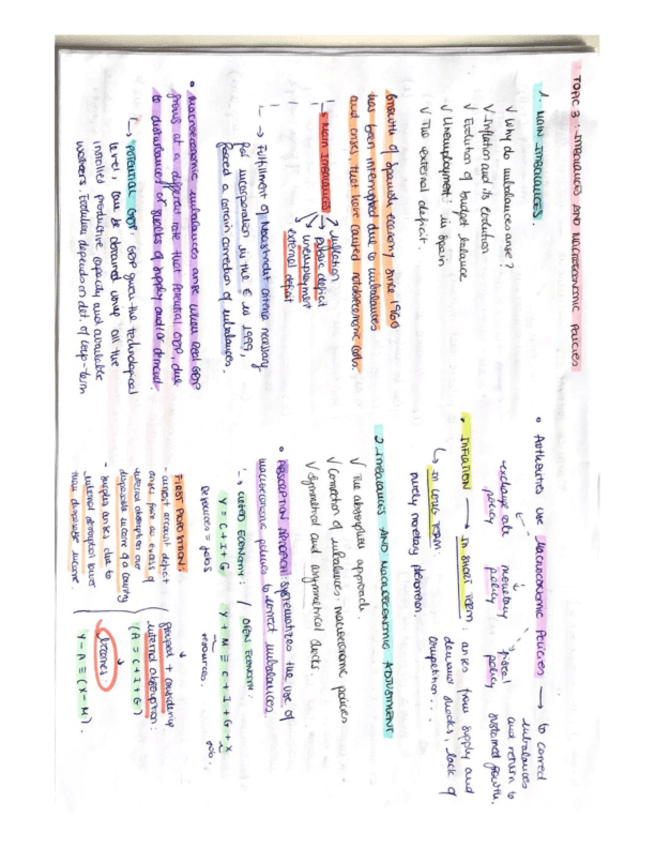 TOPIC 3: IMBALANCES AND MACROECONOMIC POLICIES
1. MAIN IMBALANCES.
√ Why do imbalances arise?
√ Inflation and its evolution
√ Evolution of budget balance
√ Unemployment: in Spain
√ The external deficit.
Growth of Spanish economy since 1960
has been interrupted due to imbalances
and crises, that have carried
↳ MAIN IMBALANCES
inflation
public deficit
unemployment
external deficit
↳ Fulfillment of Maastricht criteria necessary
for incorporation in the € in 1999,
forced a certain correction of imbalances.
• Macroeconomic imbalances arise when real GDP
grows at a different rate that potential GDP, due
to disturbances or shocks of supply and/or demand.
↳ POTENTIAL GDP: GDP given the technological
level, can be obtained using all the
installed productive capacity and available
workers. Evolution depends on det. of long-term
• Authorities use MACROECONOMIC POLICIES → to correct
imbalances
and return to
sustained growth.
exchange rate policy
monetary policy
fiscal policy
• INFLATION → IN SHORT TERM: arises from supply and
demand shocks, lack of
competition...
↳ IN LONG TERM:
purely monetary phenomenon.
2. IMBALANCES AND MACROECONOMIC ADJUSTMENT
√ The absorption approach.
√ Correction of imbalances: macroeconomic policies
√ Symmetrical and asymmetrical shocks.
• ABSORPTION APPROACH: systematizes the use of
macroeconomic policies to correct imbalances.
↳ CLOSED ECONOMY: / OPEN ECONOMY:
Y = C + I + G Y + M = C + I + G + X
Resources = jobs resources. jobs.
FIRST POSITION:
- current account deficit
arises from an excess of
internal absorption over
disposable income of a country
- surplus arises due to
internal absorption lower
than disposable income.
grouped + considering
internal absorption:
(A = C + I + G)
Y - A = (X - M).